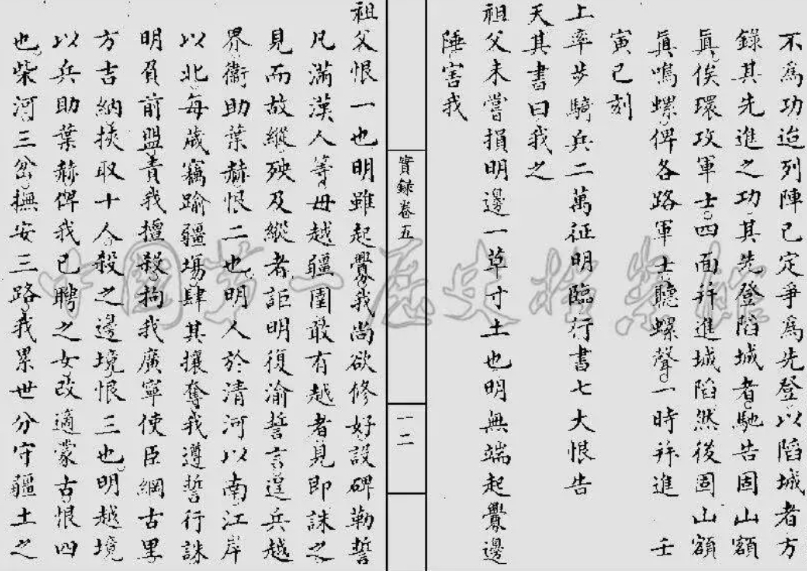 不為功迨列陣已定爭為先登以䧟城者方
錄其先進之功其先登䧟城者馳告固山額
眞俟環攻軍士四面幷進城䧟然後固山額
眞鳴螺俾各路軍士聽螺聲一時幷進　壬
寅巳刻
上率步騎兵二萬征明臨行書七大恨告
天其書曰我之
祖父未嘗損明邊一草寸土也明無端起釁邊
陲害我
實錄卷五
一二
祖父恨一也明雖起釁我尚欲修好設碑勒誓
凡滿漢人等毋越疆圉敢有越者見即誅之
見而故縱殃及縱者詎明復渝誓言逞兵越
界衛助葉赫恨二也明人於清河以南江岸
以北每歲竊踰疆場肆其攘奪我遵誓行誅
明負前盟責我擅殺拘我廣寧使臣綱古里
方吉納挾取十人殺之邊境恨三也明越境
以兵助葉赫俾我已聘之女改適蒙古恨四
也柴河三岔撫安三路我累世分守疆土之
中國第一歷史檔案館